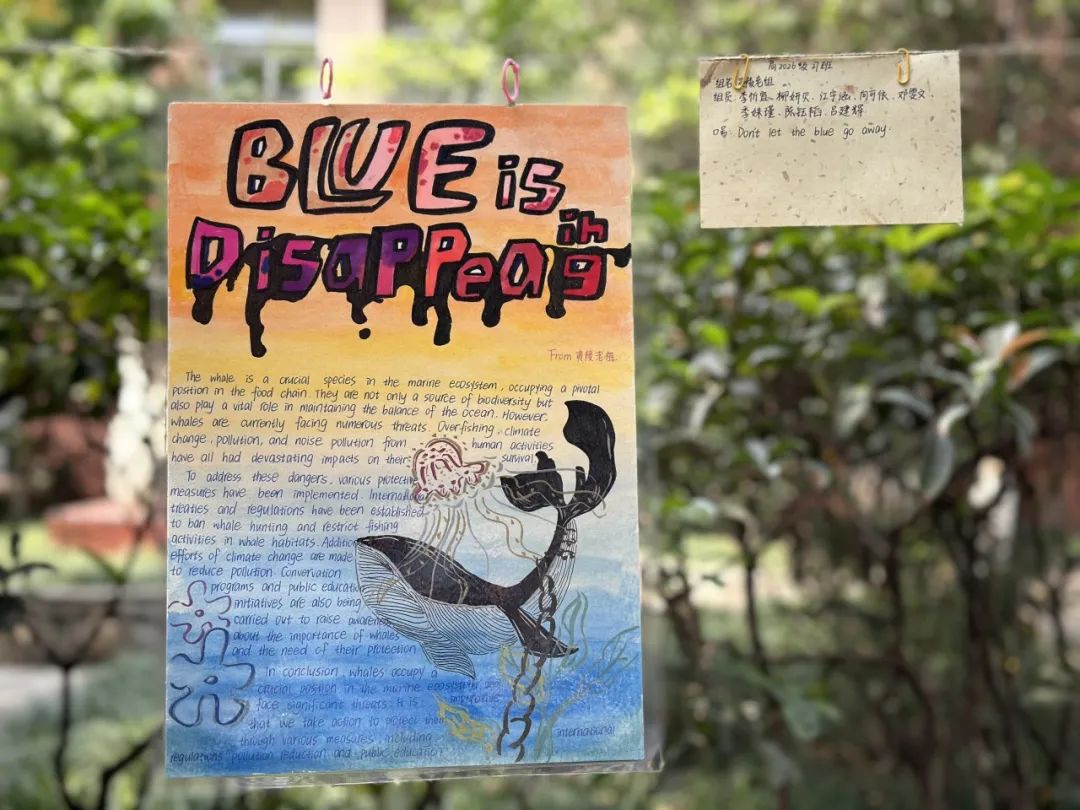 BLUE is
DisAPPeaing
From 黄陵老祖.
The whale is a crucial species in the marine ecosystem, occupying a pivotal
position in the food chain. They are not only a source of biodiversity but
also play a vital role in maintaining the balance of the ocean. However,
whales are currently facing numerous threats. Overfishing, climate
change, pollution, and noise pollution from human activities
have all had devastating impacts on their survival
To address these dangers, various protectin
measures have been implemented. Internationa
treaties and regulations have been established
to ban whale hunting and restrict fishing
activities in whale habitats. Addition
efforts of climate change are made
to reduce pollution Conservation
programs and public education
initiatives are also being
carried out to raise awareness
about the importance of whales
and the need of their protection
In conclusion, whales occupy a
crucial position in the marine ecosystem and
face significant threats. It is imperative
that we take action to protect them
through various measures, including international
regulations pollution reduction and public education
高2026级 班
组名: 老祖
组员:
口号: Don't let the blue go away.